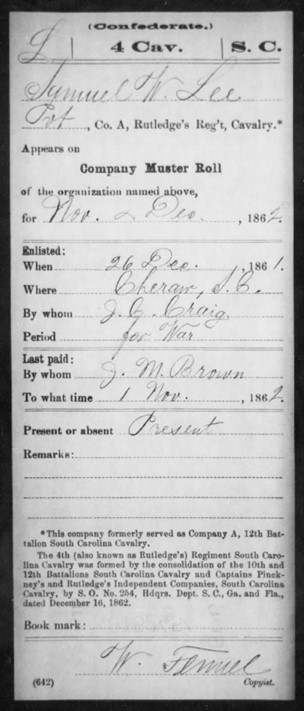 (Confederate.)
L 4 Cav. S. C.
Samuel W. Lee
Pvt, Co. A, Rutledge's Reg't, Cavalry.*
Appears on
Company Muster Roll
of the organization named above,
for Nov. & Dec. , 1862.
Enlisted:
When 26 Dec. , 1861.
Where Cheraw, S. C.
By whom J. C. Craig
Period for War
Last paid:
By whom J. M. Brown
To what time 1 Nov. , 1862.
Present or absent Present
Remarks:
*This company formerly served as Company A, 12th Bat-
talion South Carolina Cavalry.
The 4th (also known as Rutledge's) Regiment South Caro-
lina Cavalry was formed by the consolidation of the 10th and
12th Battalions South Carolina Cavalry and Captains Pinck-
ney's and Rutledge's Independent Companies, South Carolina
Cavalry, by S. O. No. 254, Hdqrs. Dept. S. C., Ga. and Fla.,
dated December 16, 1862.
Book mark:
W.
(642) Copyist.